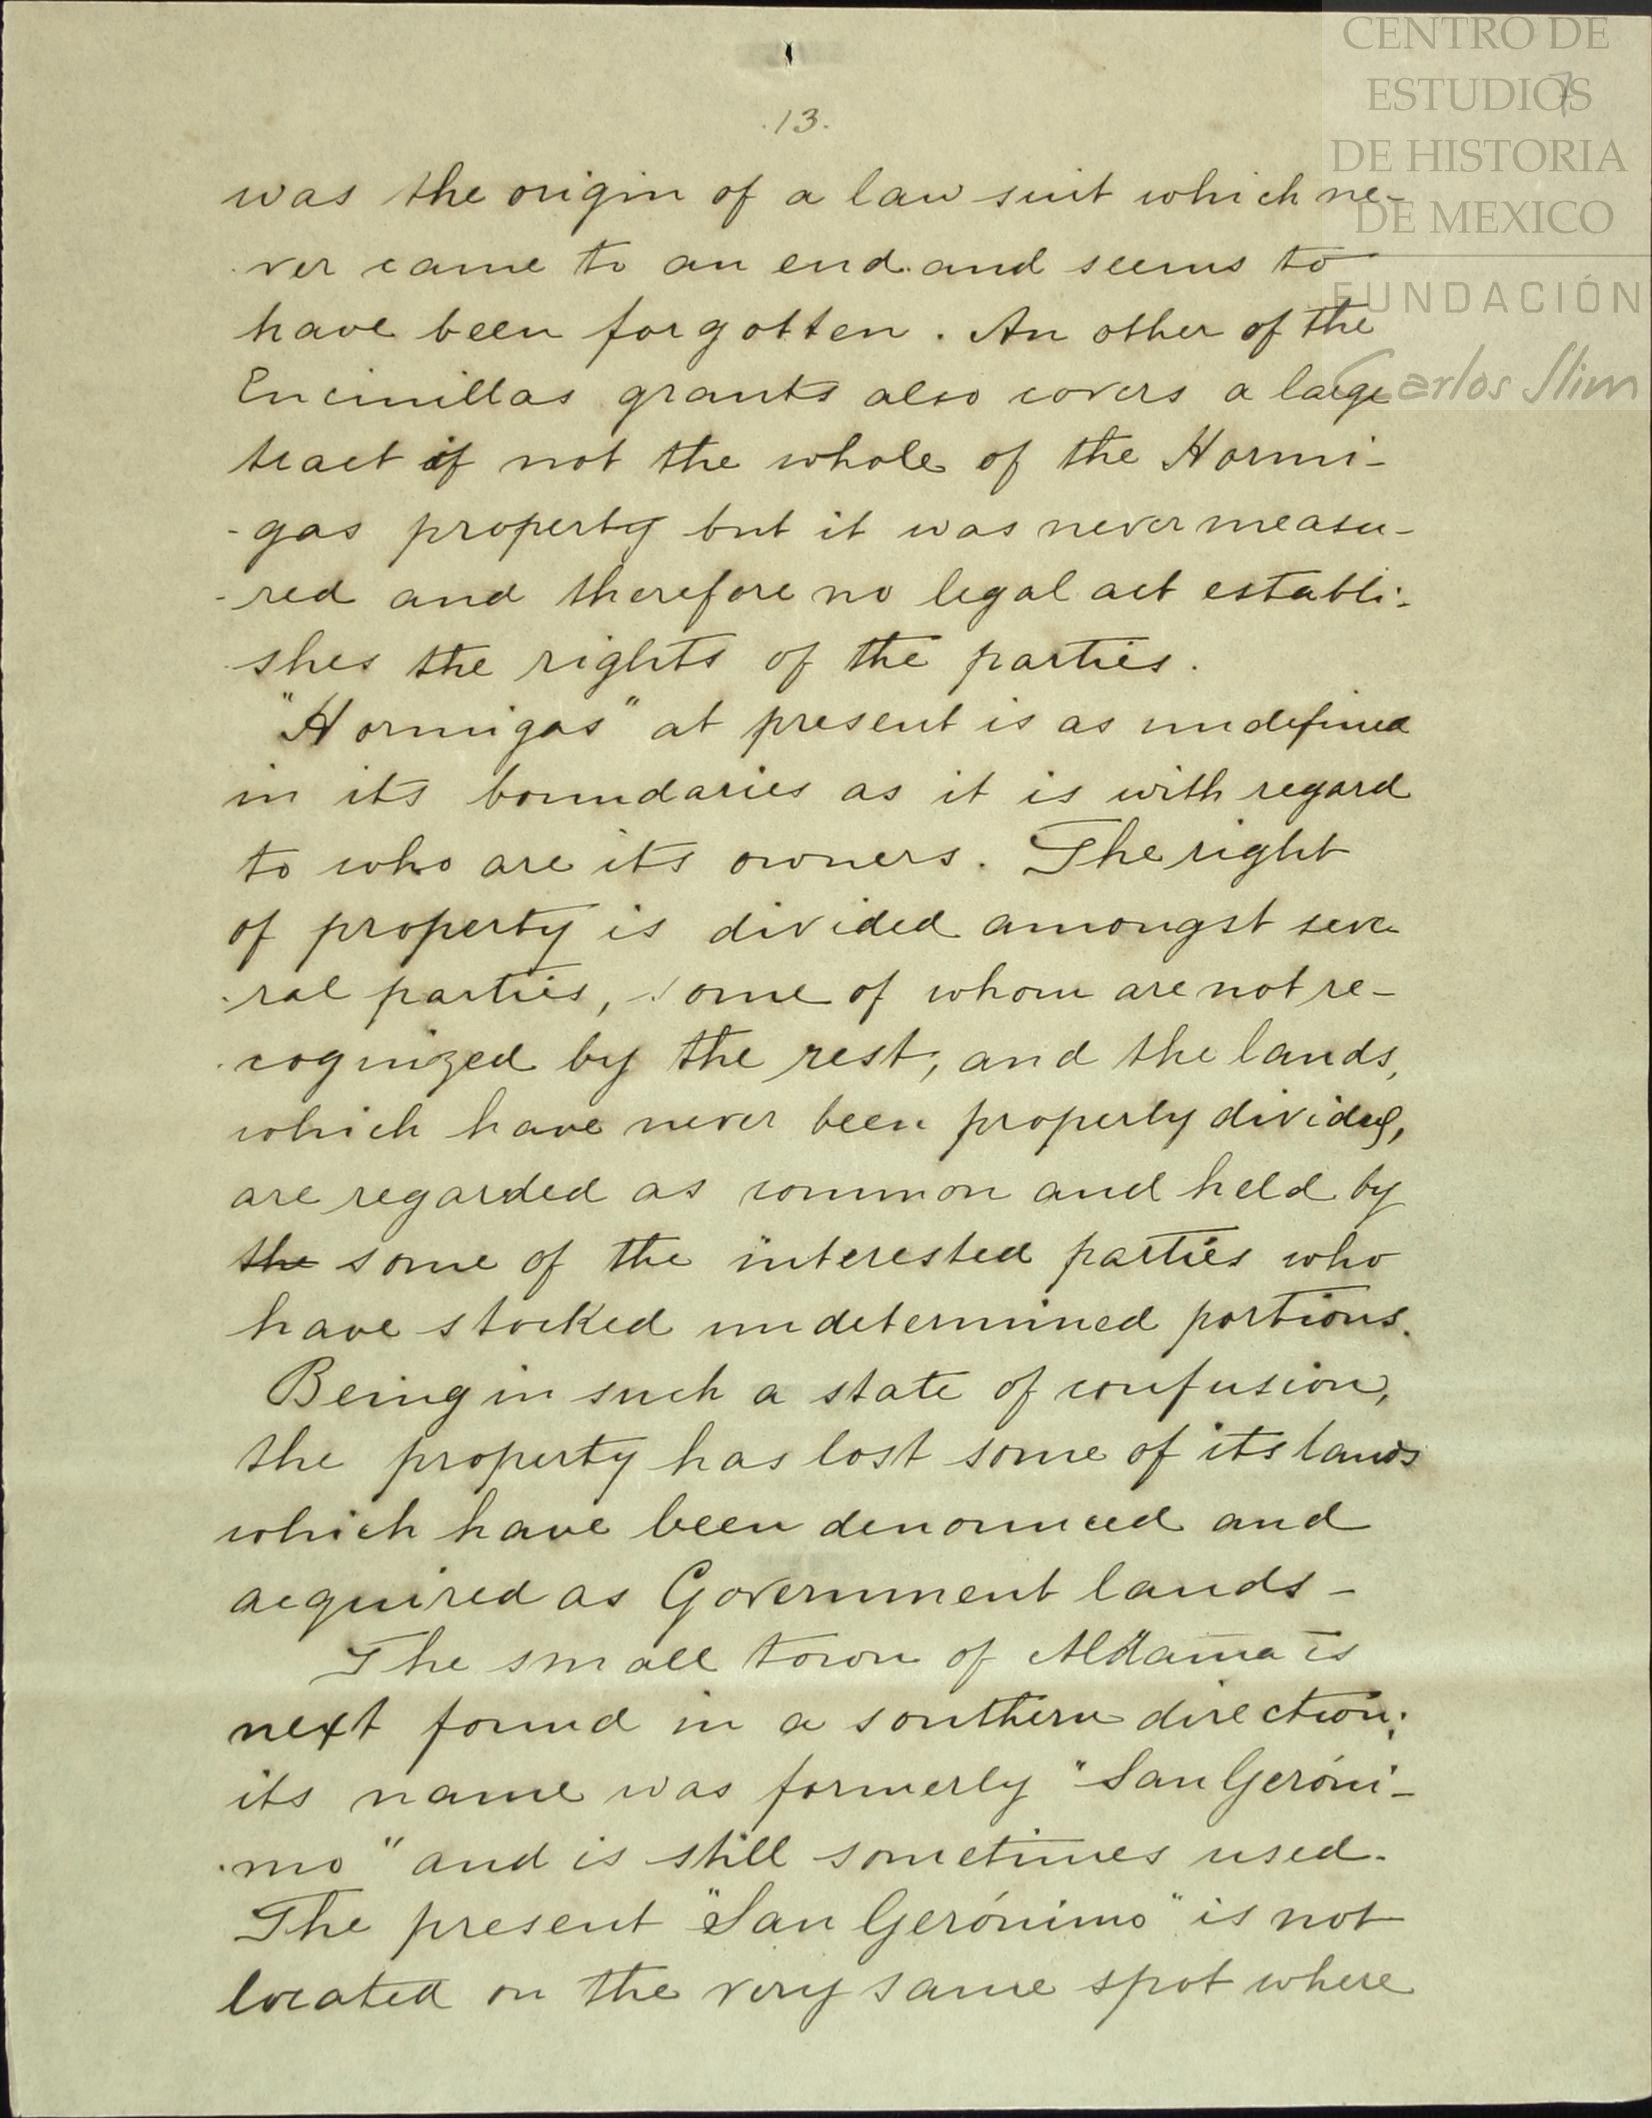 CENTRO DE
ESTUDIOS
DE HISTORIA
DE MEXICO
FUNDACIÓN
Carlos Slim
7
.13.
was the origin of a law suit which ne-
.ver came to an end and seems to
have been forgotten. An other of the
Encinillas grants also covers a large
tract if not the whole of the Hormi-
-gas property but it was never measu-
-red and therefore no legal act establi-
shes the rights of the parties.
"Hormigas" at present is as undefined
in its boundaries as it is with regard
to who are its owners. The right
of property is divided amongst seve
.ral parties, some of whom are not re-
.cognized by the rest; and the lands,
which have never been properly divided,
are regarded as common and held by
the some of the interested parties who
have stocked undetermined portions.
Being in such a state of confusion,
the property has lost some of its lands
which have been denounced and
acquired as Government lands -
The small town of Aldama is
next found in a southern direction;
its name was formerly "San Geróni-
.mo" and is still sometimes used.
The present "San Gerónimo" is not
located on the very same spot where